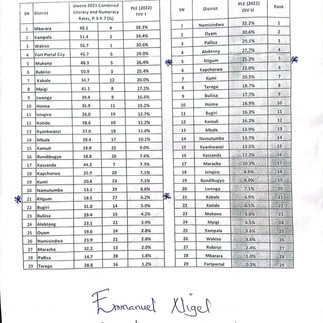 SN District Uwezo 2021 Combined Literacy and Numeracy Rates, P.3-P.7 (%) PLE (2022) DIV 1
1 Mbarara 48.5 4 38.3%
2 Kampala 51.4 2 34.4%
3 Wakiso 56.7 1 30.6%
4 Fort Portal City 45.7 6 29.0%
5 Mukono 48.3 5 26.4%
6 Rubirizi 50.9 3 25.4%
7 Kabale 34.7 12 20.0%
8 Mpigi 41.1 8 17.1%
9 Lwengo 39.4 9 16.4%
10 Hoima 35.9 11 15.2%
11 Isingiro 26.0 19 12.7%
12 Kotido 38.6 10 11.2%
13 Kyankwanzi 27.0 18 11.0%
14 Mbale 28.4 17 10.1%
15 Kamuli 18.8 25 9.0%
16 Bundibugyo 18.8 26 7.6%
17 Kassanda 44.2 7 7.9%
18 Kapchorwa 25.9 20 7.1%
19 Kumi 20.6 23 7.1%
20 Namutumba 13.1 29 6.6%
21 Kitgum 18.5 27 6.2%
22 Bugiri 31.0 14 5.9%
23 Buliisa 29.4 15 4.2%
24 Alebtong 23.1 22 3.4%
25 Oyam 19.6 24 2.8%
26 Namisindwa 23.9 21 2.8%
27 Maracha 32.2 13 2.0%
28 Pallisa 14.7 28 1.8%
29 Terego 28.8 16 1.2%
SN District PLE (2022) DIV U
1 Namisindwa 32.2% 1
2 Oyam 30.6% 2
3 Pallisa 29.1% 3
4 Alebtong 27.2% 4
5 Kitgum 25.2% 5
6 Kapchorwa 22.0% 6
7 Kumi 20.5% 7
8 Terego 18.7% 8
9 Buliisa 17.7% 9
10 Hoima 16.9% 10
11 Bugiri 16.3% 11
12 Kamuli 16.2% 12
13 Mbale 13.9% 13
14 Namutumba 13.7% 14
15 Kyankwanzi 13.5% 15
16 Kassanda 11.2% 16
17 Maracha 10.3% 17
18 Isingiro 8.6% 18
19 Bundibugyo 8.0% 19
20 Lwengo 7.1% 20
21 Kabale 6.9% 21
22 Kotido 6.5% 22
23 Mukono 5.6% 23
24 Mpigi 4.5% 24
25 Kampala 3.6% 25
26 Wakiso 3.6% 26
27 Rubirizi 2.4% 27
28 Mbarara 1.9% 28
29 Fortportal 0.3% 29
Emmanuel Nigel